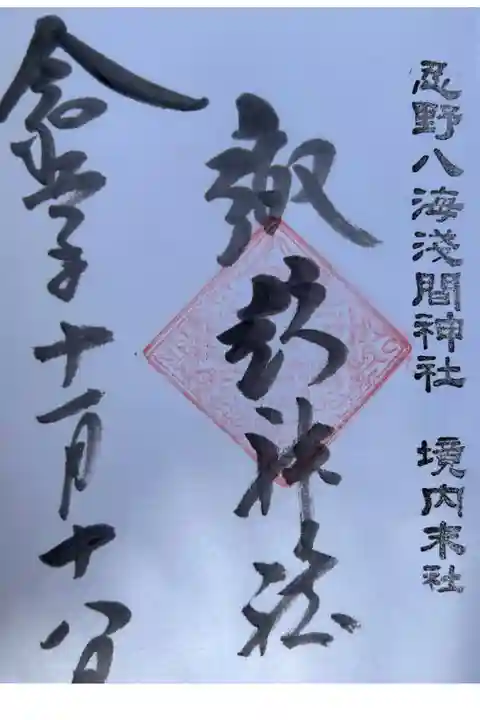 忍野八海淺間神社　境内末社
諏訪神社
令和五年十一月十八日